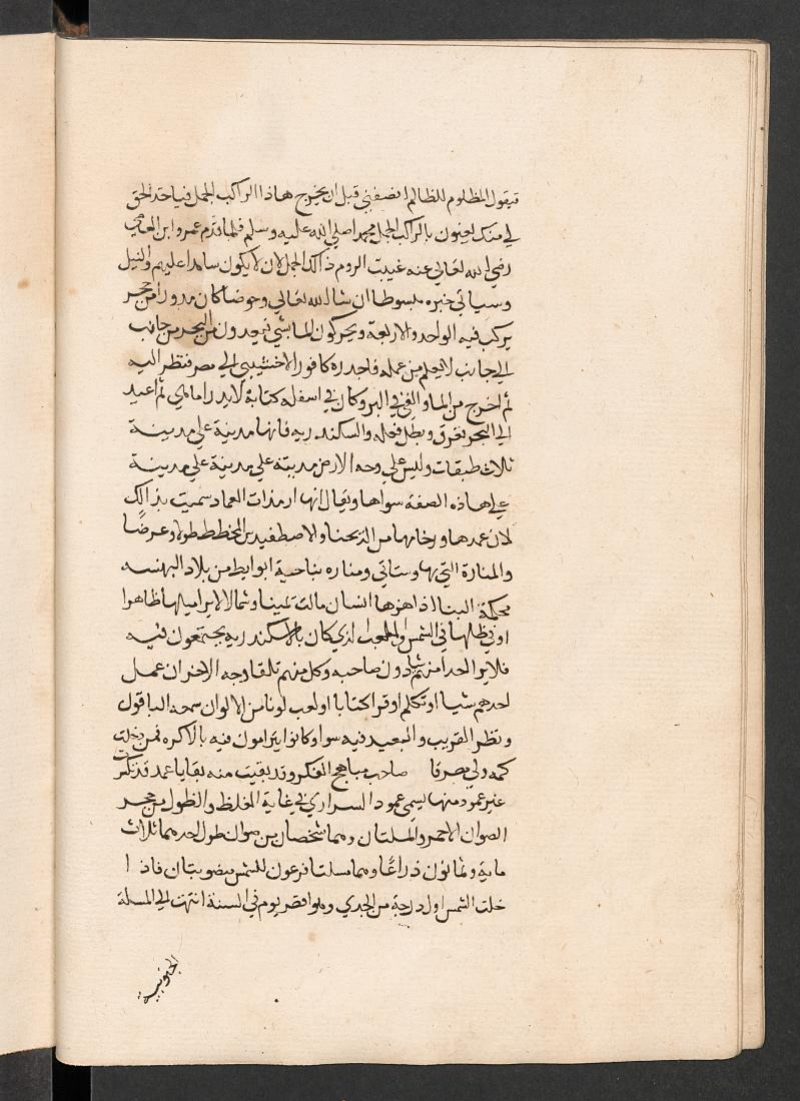 فيقول المظلوم للظالم انصفني قبل ان يخرج هاذا الراكب الجمل فياخد الحق
لي منك يعنون بالراكب الجمل محمدا صلي الله عليه وسلم فلما قدم عمرو ابن العاصي
رضي الله تعالي عنه غيبت الروم ذالك الجمل لان لا يكون شاهدا عليهم والنيل
وسياتي خبره مبسوطا ان شا الله تعالي وحوضا كان مدورا من حجر
يركب فيه الواحد والاربعة ويحركون الما بشي فيعدون من البحر من جانب
الي جانب لا يعلم من عمله فاخدره كافور الاخشيبي الي مصر فنظر اليه
ثم اخرج من الما والقي في البر وكان في اسفله كتابة لا يدرا ما هي ثم اعيد
الي البحر فغرق وبطل فعله والسكندريه فانها مدينة علي مدينة
ثلاث طبقات وليس علي وجه الارض مدينة علي مدينة علي مدينة
علي هاذه الصفة سواها ويقال انها ارم ذات العماد سميت بذالك
لان عمدها ورخامها من البدحنا والاصطفيدس المخطط طولا وعرضا
والمنارة التي بها وستاتي ومناره بناحية ابوايط من بلاد البهنسه
محكمة البنا اذا هزها انسان مالت يمينا وشمالا لا يرا ميلها ظاهرا
اوفي ظلها في الشمس والملعب الذي كان بالاسكندريه يجتمعون فيه
فلا يرا احدا منهم شيا دون صاحبه وكل منهم تلقا وجه الاخر ان عمل
احدهم شيا او تكلم او قرا كتابا او لعب لونا من الالوان سمعه الباقون
ونظر القريب والبعيد فيه سوا وكانوا يترامون فيه بالاكره فمن دخلت
كمه ولي مصر قا صاحب مباهج الفكر وقد بقيت منه بقايا عمد قد تكسرت
غير عمود منها يسمي عمود السواري في غاية الغلظ والطول من حجر
الصوان الاحمر والمسلتان وهما شخصان من صوان طول احدهما ثلاث
ماية وثمانون ذراعًا وهما مسلتا فرعون للشمس منصوبتان فاذا
حلت الشمس اول درجة من الجدي وهو اقصر يوم في السنة انتهت الي المسلة
الجنوبية